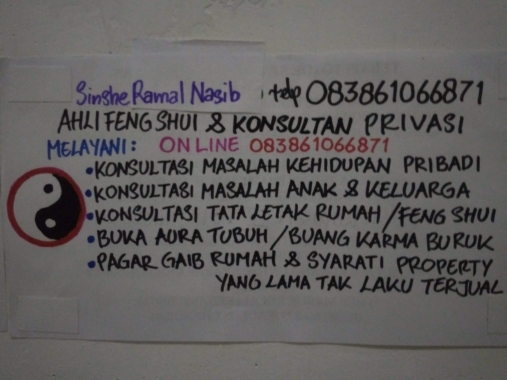 Sinshe Ramal Nasib tdp 083861066871
AHLI FENG SHUI & KONSULTAN PRIVASI
MELAYANI: ONLINE 083861066871
•KONSULTASI MASALAH KEHIDUPAN PRIBADI
•KONSULTASI MASALAH ANAK & KELUARGA
•KONSULTASI TATA LETAK RUMAH/FENG SHUI
•BUKA AURA TUBUH/BUANG KARMA BURUK
•PAGAR GAIB RUMAH & SYARATI PROPERTY
YANG LAMA TAK LAKU TERJUAL